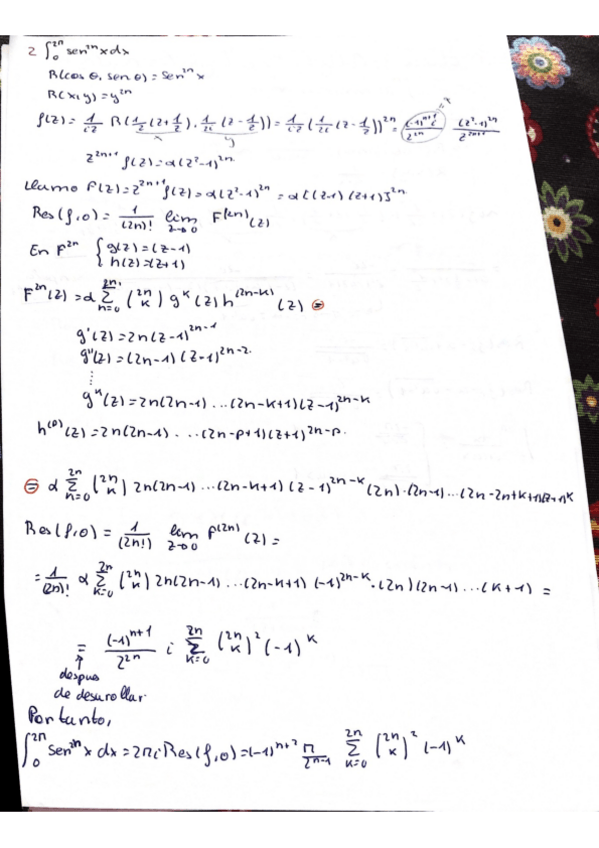 2 ∫₀^{2π} sen^{2n} x dx
R(cos θ, sen θ) = sen^{2n} x
R(x,y) = y^{2n}
f(z) = 1/(iz) R(1/2(z+1/z), 1/(2i)(z-1/z)) = 1/(iz) (1/(2i)(z-1/z))^{2n} = (-1)^{n+1} i/2^{2n} (z²-1)^{2n}/z^{2n+1}
x y
z^{2n+1} f(z) = α(z²-1)^{2n}
Llamo F(z) = z^{2n+1} f(z) = α(z²-1)^{2n} = α[(z-1)(z+1)]^{2n}
Res(f,0) = 1/(2n)! lim_{z→0} F^{(2n)}(z)
En F^{2n} { g(z) = (z-1)
h(z) = (z+1)
F^{2n}(z) = α Σ_{n=0}^{2n} (2n K) g^K(z) h^{(2n-K)}(z) =
g'(z) = 2n(z-1)^{2n-1}
g''(z) = (2n-1)(z-1)^{2n-2}
⋮
g^K(z) = 2n(2n-1)...(2n-K+1)(z-1)^{2n-K}
h^{(p)}(z) = 2n(2n-1)...(2n-p+1)(z+1)^{2n-p}
= α Σ_{K=0}^{2n} (2n K) 2n(2n-1)...(2n-K+1)(z-1)^{2n-K} (2n)·(2n-1)...(2n-2n+K+1)(z+1)^K
Res(f,0) = 1/(2n!) lim_{z→0} F^{(2n)}(z) =
= 1/(2n)! α Σ_{K=0}^{2n} (2n K) 2n(2n-1)...(2n-K+1)(-1)^{2n-K}·(2n)(2n-1)...(K+1) =
= (-1)^{n+1}/2^{2n} i Σ_{K=0}^{2n} (2n K)² (-1)^K
despues
de desarollar
Por tanto,
∫₀^{2π} sen^{2n} x dx = 2πi Res(f,0) = (-1)^{n+2} π/2^{n-1} Σ_{K=0}^{2n} (2n K)² (-1)^K